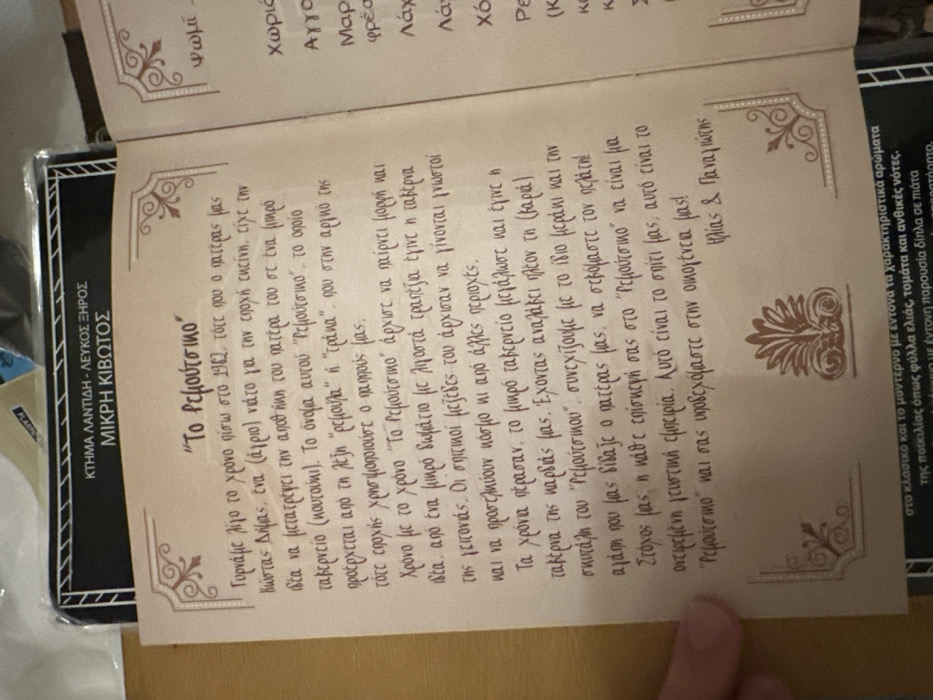 ΚΤΗΜΑ ΛΑΝΤΙΔΗ - ΛΕΥΚΟΣ ΞΗΡΟΣ
ΜΙΚΡΗ ΚΙΒΩΤΟΣ
"Το Ρεμούτσικο"
Γυρνάμε λίγο το χρόνο πίσω στο 1982, τότε που ο πατέρας μας
Κώστας Δήμας, ένα (άγριο) νιάτο για την εποχή εκείνη, είχε την
ιδέα να μετατρέψει την αποθήκη του πατέρα του σε ένα μικρό
ταβερνείο (κουτούκι). Το όνομα αυτού "Ρεμούτσικο", το οποίο
προέρχεται από τη λέξη "ρεμούλα" ή "τράκα", που στην αργκό της
τότε εποχής χρησιμοποιούσε ο παππούς μας.
Χρόνο με το χρόνο "Το Ρεμούτσικο" άρχισε να παίρνει μορφή και
ιδέα, από ένα μικρό δωμάτιο με λιγοστά τραπέζια έγινε η ταβέρνα
της γειτονιάς. Οι σπιτικοί μεζέδες του άρχισαν να γίνονται γνωστοί
και να προσελκύουν κόσμο κι από άλλες περιοχές.
Τα χρόνια πέρασαν, το μικρό ταβερνείο μεγάλωσε και έγινε η
ταβέρνα της καρδιάς μας. Έχοντας αναλάβει πλέον τη (βαριά)
σκυτάλη του "Ρεμούτσικου", συνεχίζουμε με το ίδιο μεράκι και την
αγάπη που μας δίδαξε ο πατέρας μας, να στεκόμαστε τον πελάτη!
Στόχος μας, η κάθε επίσκεψή σας στο "Ρεμούτσικο" να είναι μια
ονειρεμένη γευστική εμπειρία. Αυτό είναι το σπίτι μας, αυτό είναι το
"Ρεμούτσικο" και σας υποδεχόμαστε στην οικογένειά μας!
Ηλίας & Παναγιώτης
ψωμί -
Χωριά
Αγγο
Μαρ
φρέσ
Λάχ
Λάχ
Χό
Ρε
(Κ
στο κλασικό και το μοντέρνο με έντονα τα χαρακτηριστικά αρώματα
της ποικιλίας όπως φύλλα ελιάς, τομάτα και ανθικές νότες.
με έντονη παρουσία δίπλα σε πιάτα